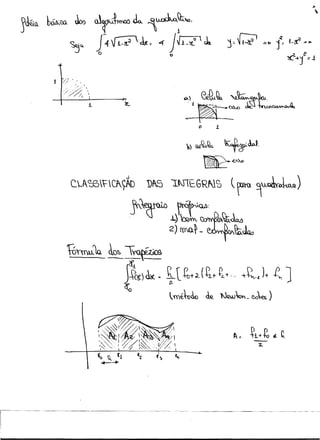 Idéia básica dos algoritmos da quadratura.
Seja ∫₀¹ 4√1-x² dx. ou ∫₀¹ √1-x² dx   y=√1-x² ou y²=1-x² ou
x²+y²=1
1
1
x
a) Célula retângular
1
erro de truncamento
0 1
b) célula trapezoidal
erro
CLASSIFICAÇÃO DAS INTEGRAIS (para quadratura)
Integrais próprias
1) bem comportadas
2) mal-comportadas
Fórmula dos Trapézios
f(x)dx = h/2 [f₀+2(f₁+f₂+... +fₙ₋₁)+ fₙ]
(método de Newton-cotes)
A₁ A₂ A₃
A = f₁+f₀/2 x h
h